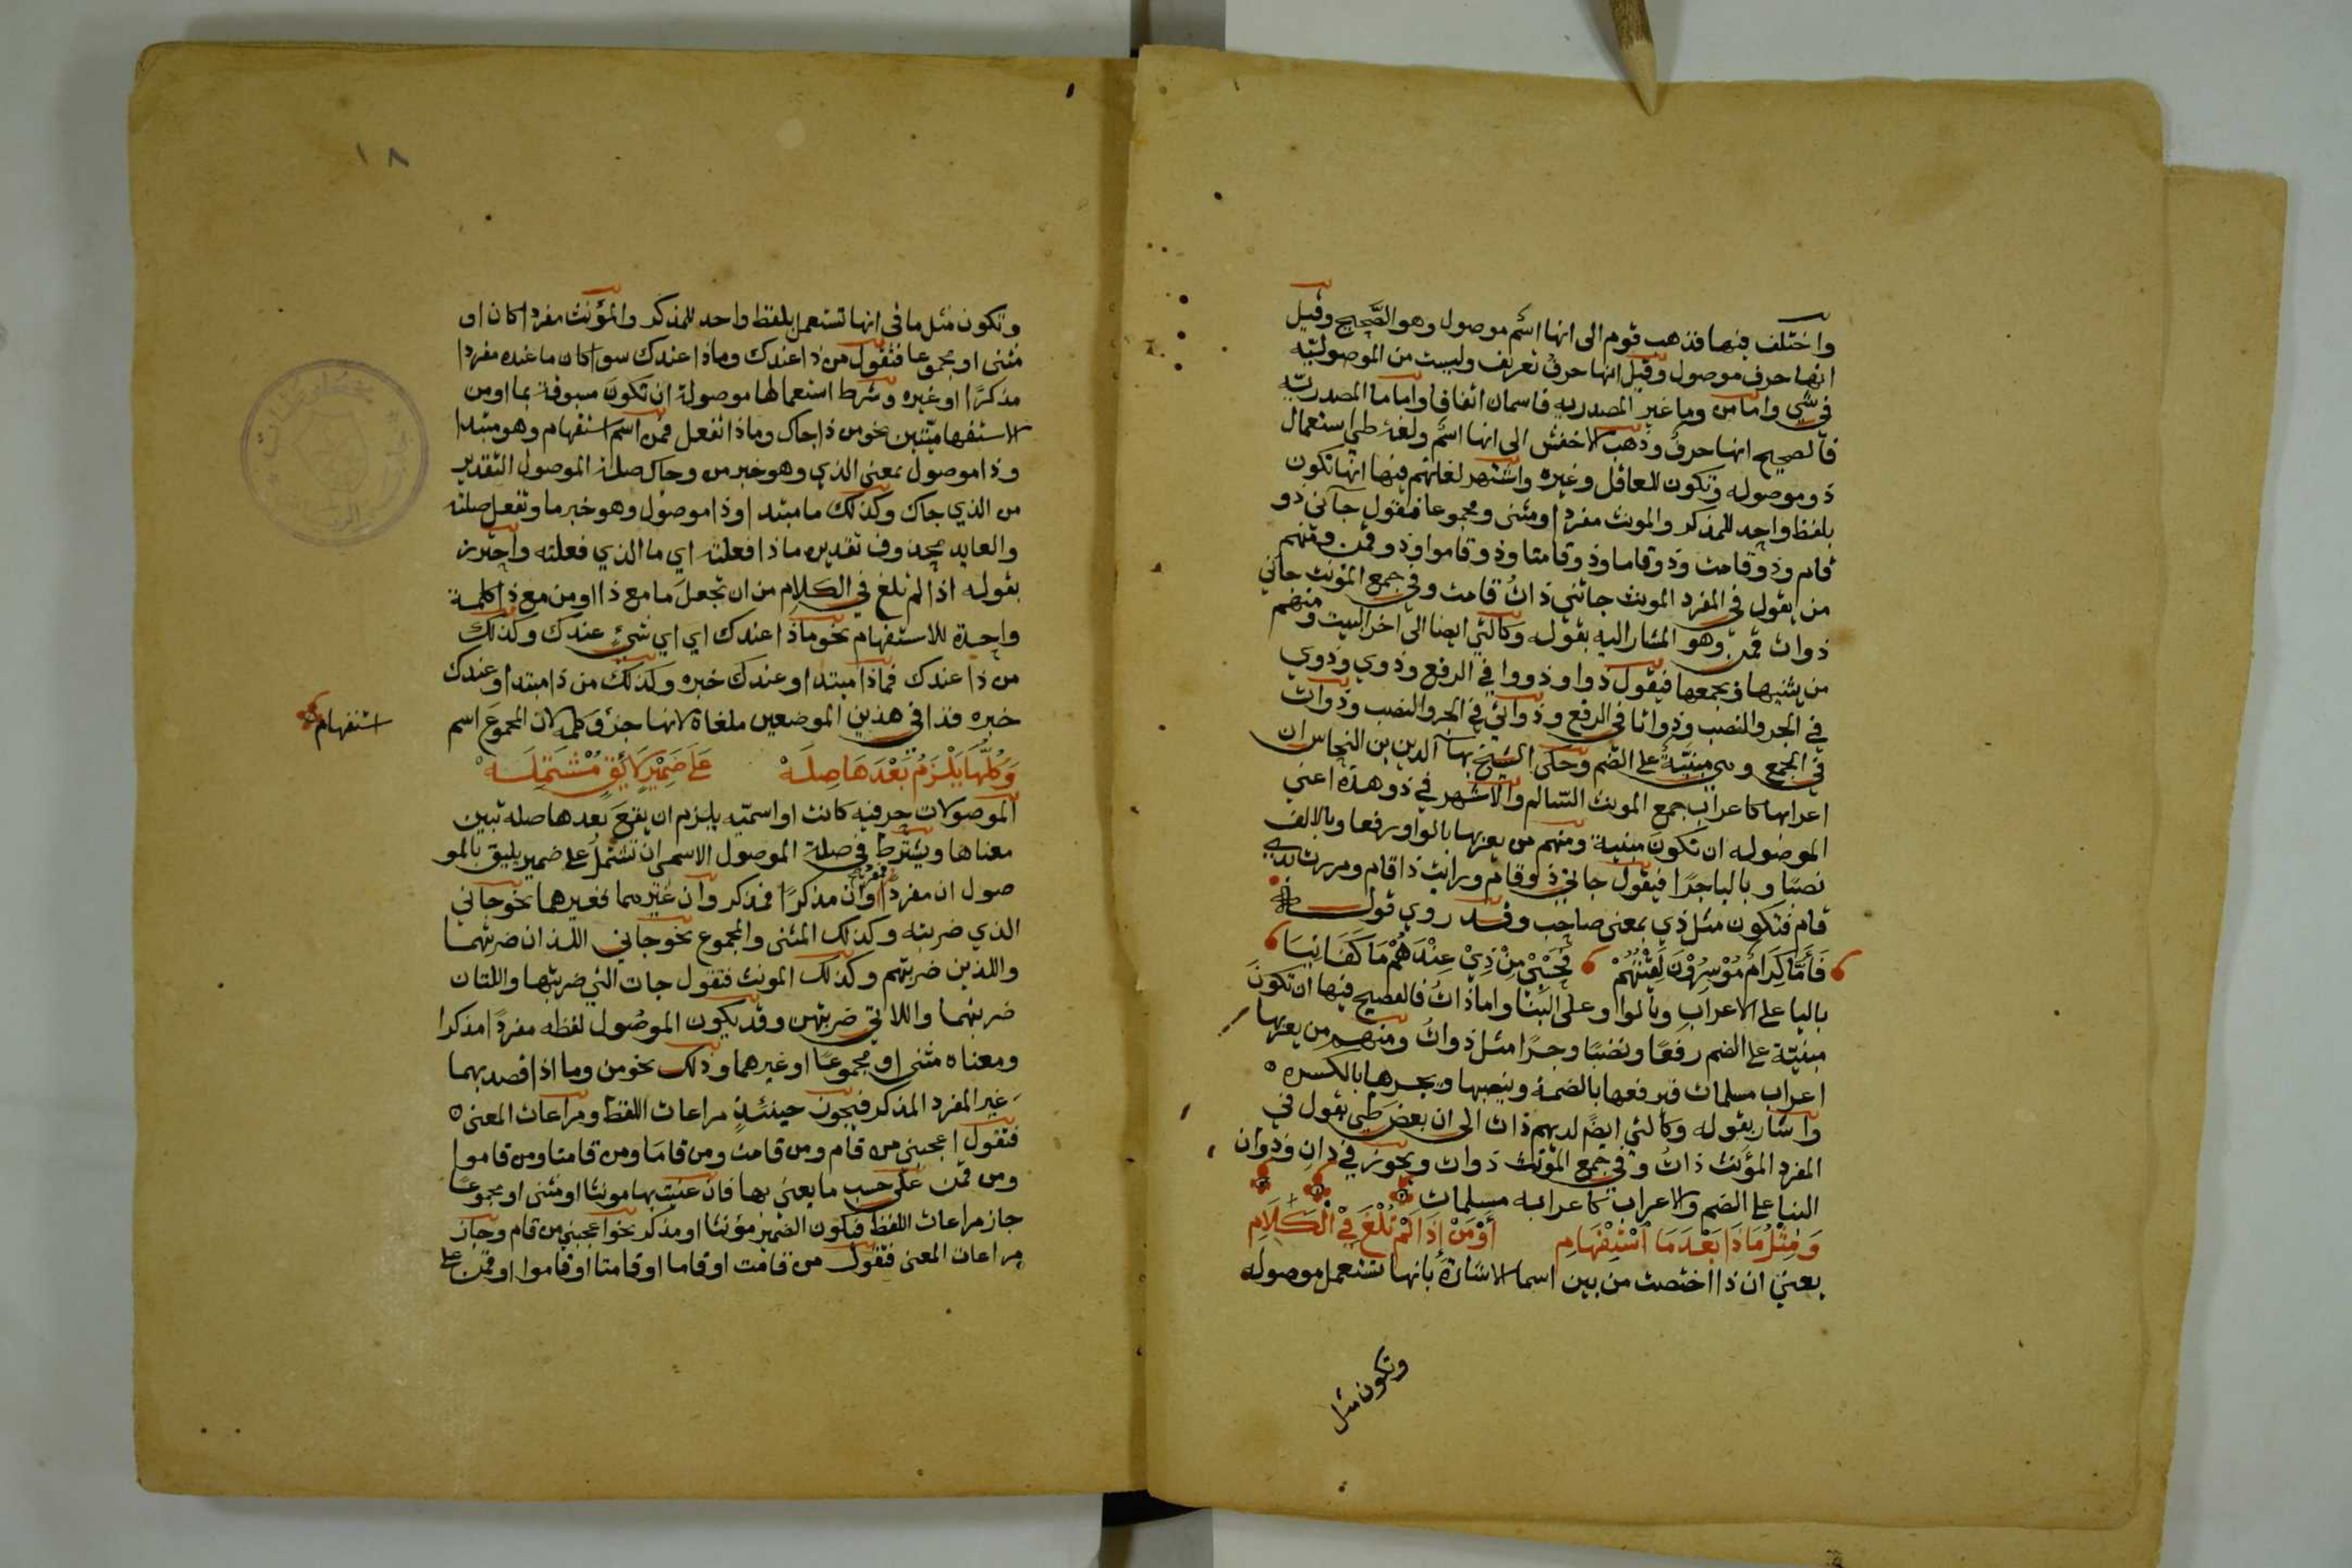 واختلف فيها فذهب قوم الى انها اسم موصول وهو الصحيح وقيل
انها حرف موصول وقيل انها حرف تعريف وليست من الموصوليه
في شي واما من وما غير المصدريه فاسمان اتفاقا واما ما المصدريه
فالصحيح انها حرف وذهب الاخفش الى انها اسم ولغة طي استعمال
ذو موصوله وتكون للعاقل وغيره واشهر لغاتهم فيها انها تكون
بلفظ واحد للمذكر والمونث مفردا ومثنى ومجموعا فتقول جآني ذو
قام وذو قامت وذو قاما وذو قامتا وذو قاموا وذو قمن ومنهم
من يقول في المفرد المونث جاتني ذات قامت وفي جمع المؤنث جاني
ذوات قمن وهو المشار اليه بقوله وكالتي ايضا الى اخر البيت ومنهم
من يثنيها ويجمعها فيقول ذوا وذووا في الرفع وذوي وذوي
في الجر والنصب وذواتا في الرفع وذواتي في الجر والنصب وذوات
في الجمع وهي مبنيّة على الضم وحكى الشيخ بهآ الدين بن النحاس ان
اعرابها كاعراب جمع المونث السّالم والاشهر في ذو هذه اعني
الموصوله ان تكون مبنية ومنهم من يعربها بالواو رفعا وبالالف
نصبًا وبالياء جرًا فيقول جاني ذو قام ورايت ذا قام ومررت بذي
قام فتكون مثل ذي بمعنى صاحب وقد روي قوله
فَأَمَّا كِرَامٌ مُوْسِرُوْنَ لَقِيْتُهُمْ فَحَسْبِيَ مِنْ ذِيْ عِنْدَهُمْ مَا كَفَانِيَا
باليا على الاعراب وبالواو على البنا واما ذات فالفصيح فيها ان تكون
مبنيّة على الضم رفعًا ونصبًا وجرًا مثل ذوات ومنهم من يعربها
اعراب مسلمات فيرفعها بالضمة وينصبها ويجرها بالكسره
واشار بقوله وكالتي ايضًا لديهم ذات الى ان بعض طي يقول في
المفرد المؤنث ذات وفي جمع المؤنث ذوات ويجوز في ذات وذوات
البنا على الضم والاعراب كاعراب مسلمات
وَمِثْلُ مَا ذَا بَعْدَ مَا اسْتِفْهَامِ أَوْ مَنْ إِذَا لَمْ تُلْغَ فِيْ الْكَلَامِ
يعني ان ذا اختصت من بين اسما الاشارة بانها تستعمل موصوله
وتكون مثل
١٨
وتكون مثل ما في انها تستعمل بلفظ واحد للمذكر والمؤنث مفردا كان او
مثنى او مجموعا فتقول من ذا عندك وماذا عندك سوا كان ما عنده مفردا
مذكرًا او غيره وشرط استعمالها موصولة ان تكون مسبوقة بما او من
الاستفهاميّتين نحو من ذا جاك وماذا تفعل فمن اسم استفهام وهو مبتدا
وذا موصول بمعنى الذي وهو خبر من وجاك صلة الموصول التقدير
من الذي جاك وكذلك ما مبتدا وذا موصول وهو خبر ما وتفعل صلته
والعايد محذوف تقديره ماذا فعلته اي ما الذي فعلته واحترز
بقوله اذا لم تلغ في الكلام من ان تجعل ما مع ذا او من مع ذا كلمة
واحدة للاستفهام نحو ماذا عندك اي اي شيء عندك وكذلك
من ذا عندك فماذا مبتدا وعندك خبره وكذلك من ذا مبتدا وعندك
خبره فذا في هذين الموضعين ملغاة لانها جزؤ كلمه لان المجموع اسم
استفهام
وَكُلُّهَا يَلْزَمُ بَعْدَهَا صِلَهْ عَلَى ضَمِيْرٍ لَائِقٍ مُشْتَمِلَهْ
الموصولات حرفيه كانت او اسميّه يلزم ان يقع بعدها صله تبين
معناها ويشترط في صلة الموصول الاسمي ان تشتمل على ضمير يليق بالمو
صول ان مفردًا وان مذكرًا فمذكر وان غيرهما فغيرهما نحو جاني
الذي ضربته وكذلك المثنى والمجموع نحو جاني اللذان ضربتهما
واللذين ضربتهم وكذلك المونث فتقول جات التي ضربتها واللتان
ضربتهما واللاتي ضربتهن وقد يكون الموصول لفظه مفردًا مذكرا
ومعناه مثنى او مجموعًا او غيرهما وذلك نحو من وما اذا قصد بهما
غير المفرد المذكر فيجوز حينئذٍ مراعات اللفظ ومراعات المعنى
فتقول اعجبني من قام ومن قامت ومن قاما ومن قامتا ومن قاموا
ومن قمن على حسب ما يعني بها فان عنيت بها مونثا او مثنى او مجموعًا
جاز مراعات اللفظ فيكون الضمير مؤنثا او مذكر نحو اعجبني من قام وجاز
مراعات المعنى فتقول من قامت او قاما او قامتا او قاموا او قمن على